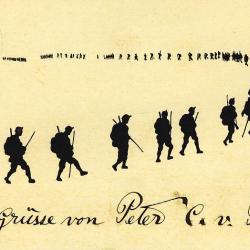 Grüsse von Peter C. v.